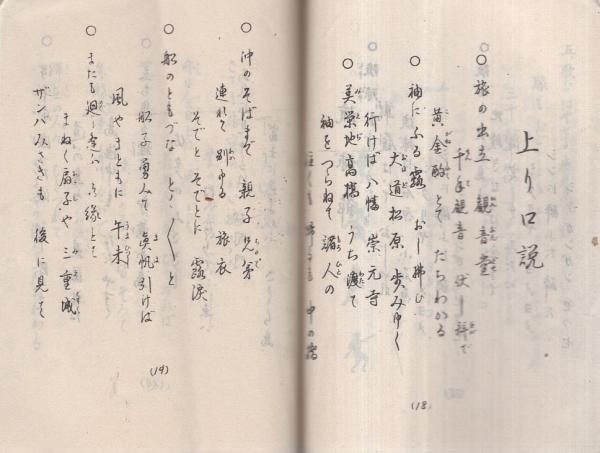 上り口説
○ 旅の出立 観音堂
千手観音 伏し拝で
黄金酌 とて たちわかる
○ 袖にふる露 おし拂ひ
大道松原 歩みゆく
行けば 八幡 崇元寺
○ 美栄地高橋 うち渡て
袖をつらねて 諸人の
(18)
○ 沖のそばまで 親子兄弟
連れて 別ゆる 旅衣
そでと そでとに 露涙
○ 船のともづな とく〱と
船子勇みて 真帆引けば
風やまともに 午未
○ またも廻り逢ふ 御縁とて
まねく扇子や 三重城
ザンパみさきも 後に見て
(19)